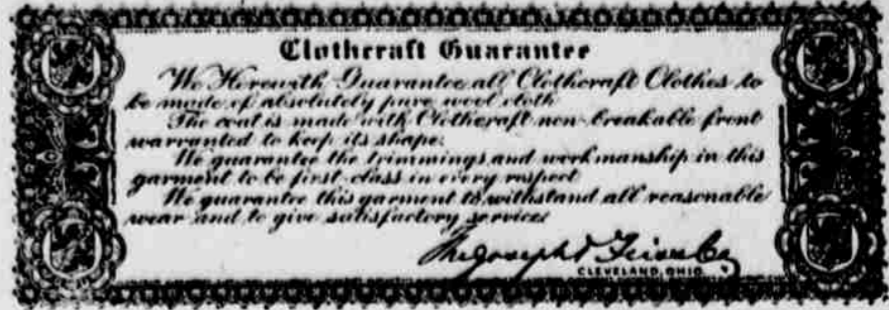 Clothcraft Guarantee
We Herewith Guarantee all Clothcraft Clothes to
be made of absolutely pure wool cloth
The coat is made with Clothcraft non-breakable front
warranted to keep its shape.
We guarantee the trimmings and workmanship in this
garment to be first-class in every respect
We guarantee this garment to withstand all reasonable
wear and to give satisfactory service
The Joseph & Feiss Co
CLEVELAND, OHIO